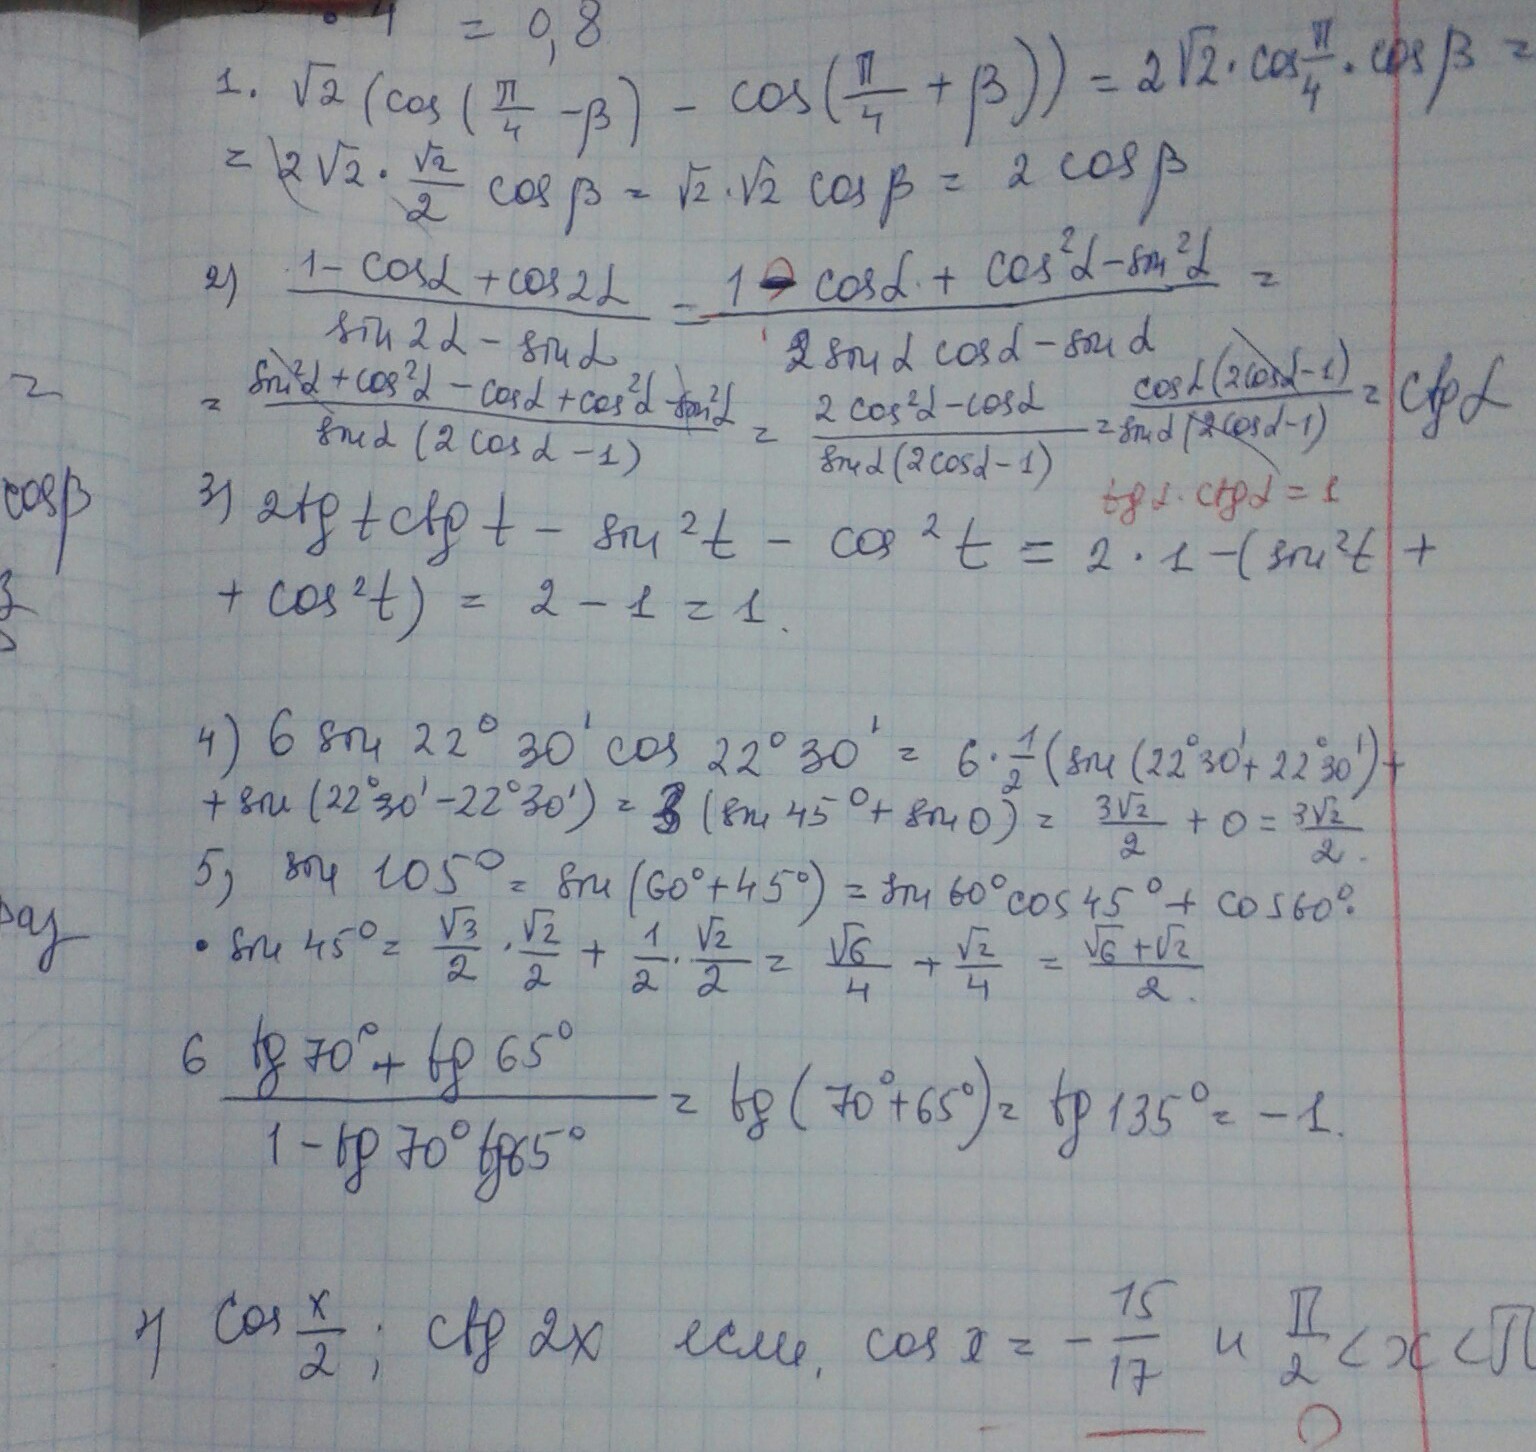 · 4 = 0,8
1. √2 (cos (π/4 − β) − cos (π/4 + β)) = 2√2 · cos π/4 · cos β =
= 2√2 · √2/2 cos β = √2 · √2 cos β = 2 cos β
2) (1 − cos α + cos 2α)/(sin 2α − sin α) = (1 − cos α + cos²α − sin²α)/(2 sin α cos α − sin α) =
= (sin²α + cos²α − cos α + cos²α − sin²α)/(sin α (2 cos α − 1)) = (2 cos²α − cos α)/(sin α (2 cos α − 1)) = (cos α (2 cos α − 1))/(sin α (2 cos α − 1)) = ctg α
tg α · ctg α = 1
3) 2 tg t ctg t − sin²t − cos²t = 2 · 1 − (sin²t +
+ cos²t) = 2 − 1 = 1.
cos β
4) 6 sin 22°30' cos 22°30' = 6 · 1/2 (sin (22°30' + 22°30') +
+ sin (22°30' − 22°30') = 3 (sin 45° + sin 0) = 3√2/2 + 0 = 3√2/2.
5) sin 105° = sin (60° + 45°) = sin 60° cos 45° + cos 60° ·
· sin 45° = √3/2 · √2/2 + 1/2 · √2/2 = √6/4 + √2/4 = (√6 + √2)/2.
6 (tg 70° + tg 65°)/(1 − tg 70° tg 65°) = tg (70° + 65°) = tg 135° = −1.
7) cos x/2 ; ctg 2x если, cos x = − 15/17 и π/2 < x < π